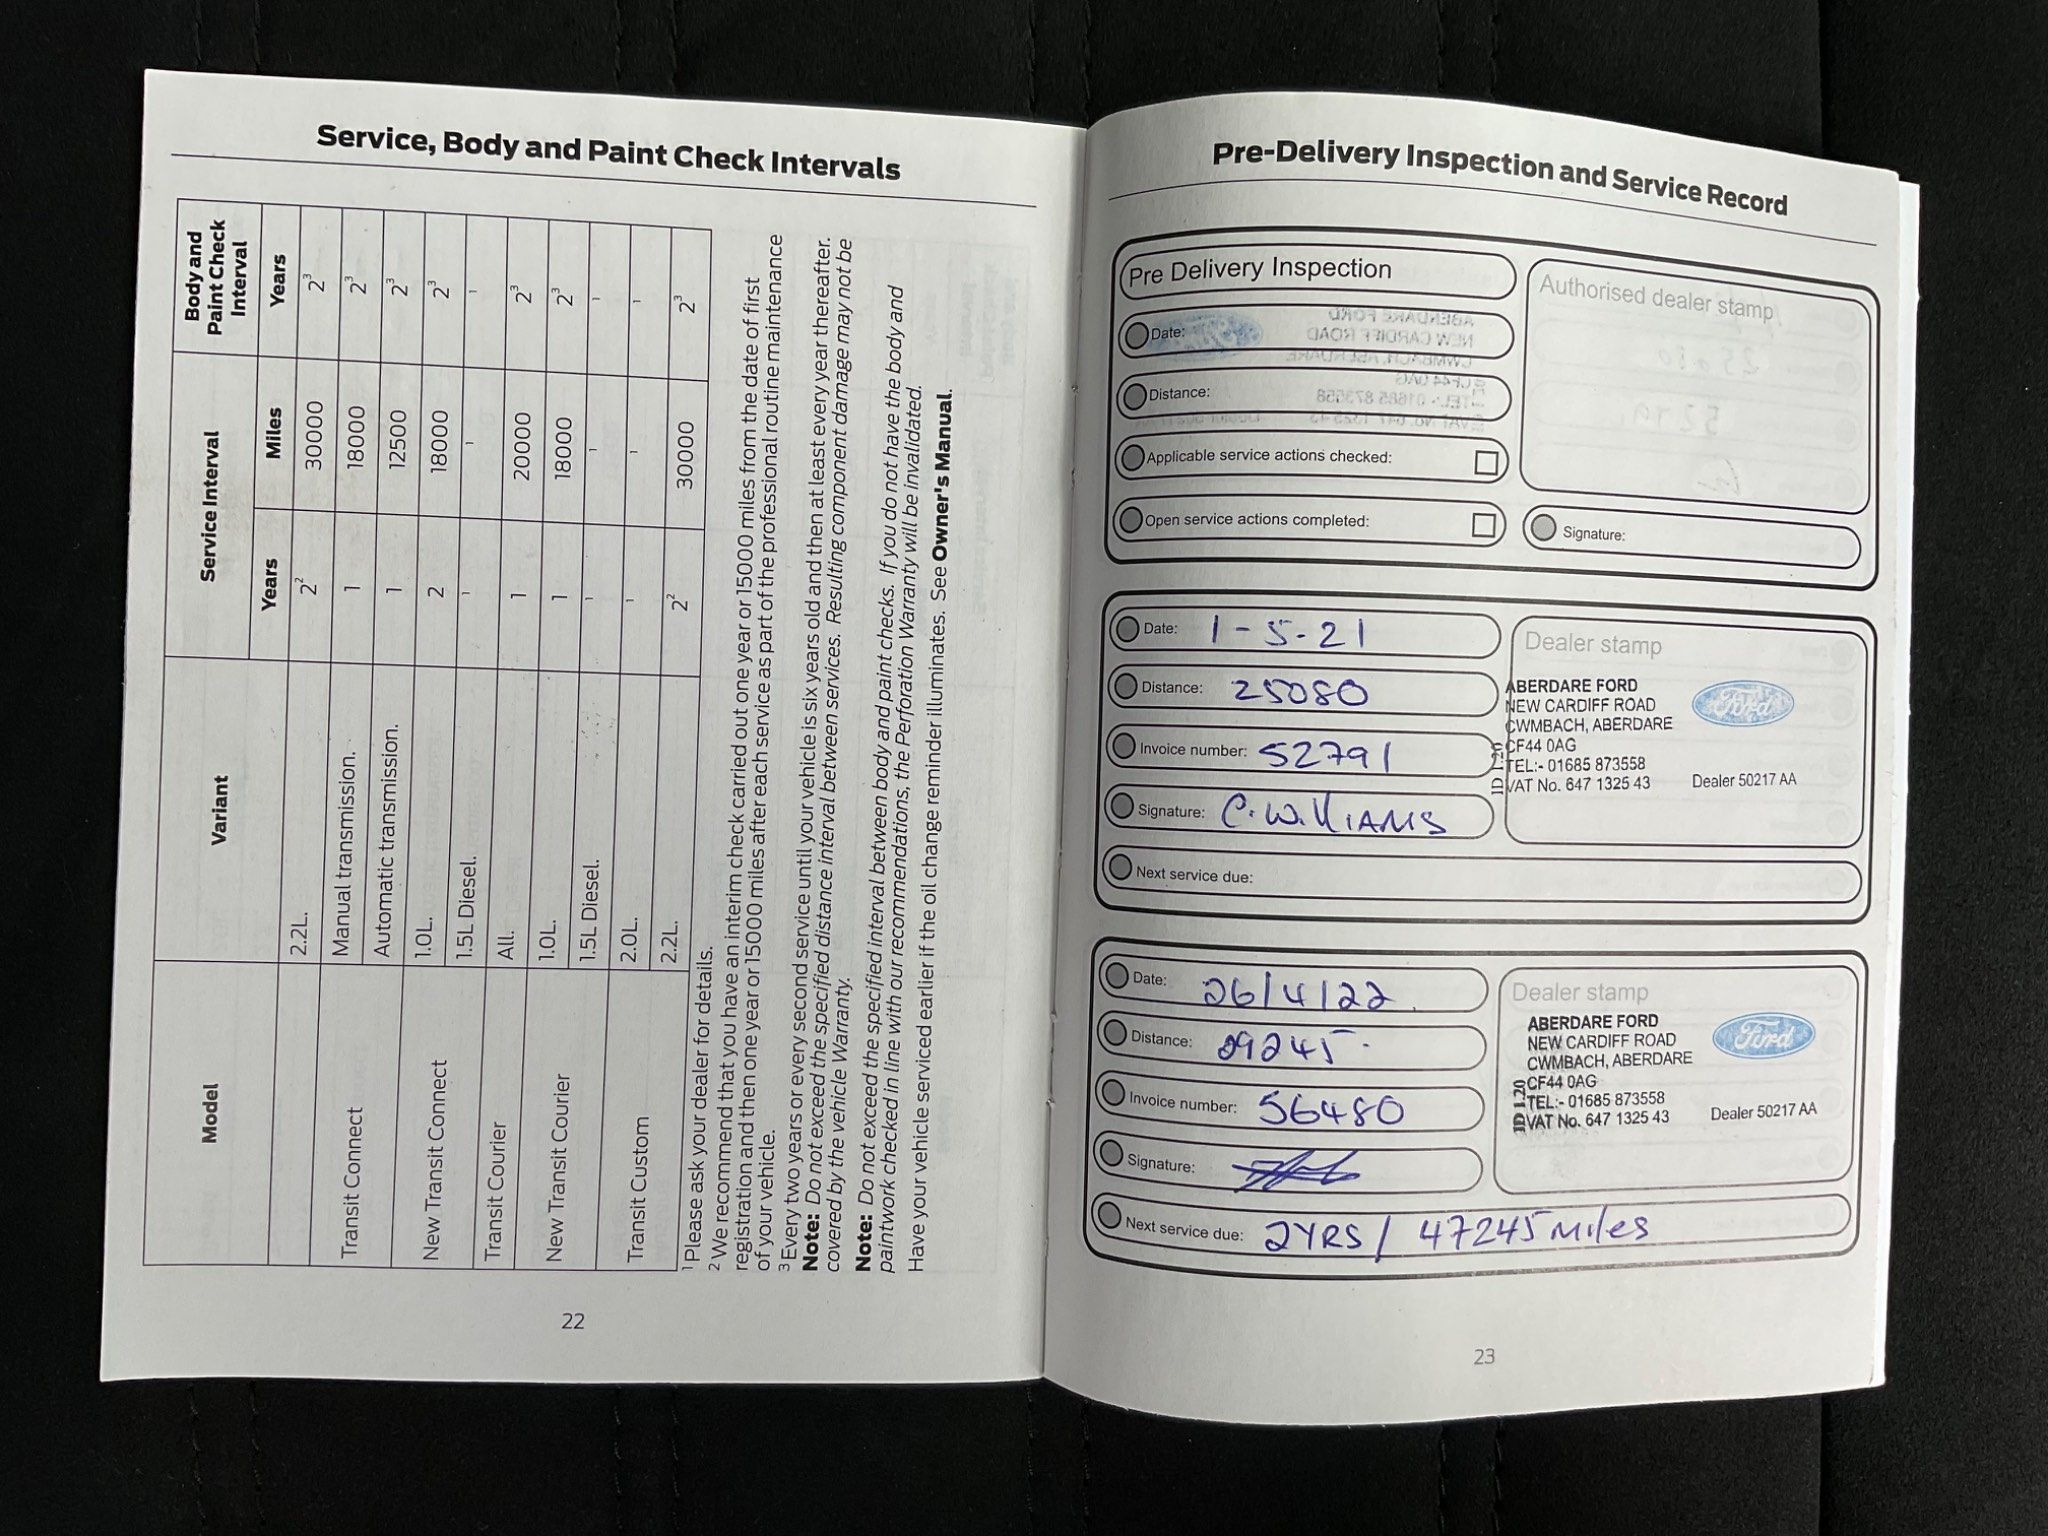 Service, Body and Paint Check Intervals
Model Variant Service Interval Body and Paint Check Interval
Years Miles Years
2.2L. 2² 30000 2³
Transit Connect Manual transmission. 1 18000 2³
Automatic transmission. 1 12500 2³
New Transit Connect 1.0L. 2 18000 2³
1.5L Diesel. ¹ ¹ ¹
Transit Courier All. 1 20000 2³
New Transit Courier 1.0L. 1 18000 2³
1.5L Diesel. ¹ ¹ ¹
Transit Custom 2.0L. ¹ ¹ ¹
2.2L. 2² 30000 2³
¹ Please ask your dealer for details.
² We recommend that you have an interim check carried out one year or 15000 miles from the date of first
registration and then one year or 15000 miles after each service as part of the professional routine maintenance
of your vehicle.
³ Every two years or every second service until your vehicle is six years old and then at least every year thereafter.
Note: Do not exceed the specified distance interval between services. Resulting component damage may not be
covered by the vehicle Warranty.
Note: Do not exceed the specified interval between body and paint checks. If you do not have the body and
paintwork checked in line with our recommendations, the Perforation Warranty will be invalidated.
Have your vehicle serviced earlier if the oil change reminder illuminates. See Owner's Manual.
22
Pre-Delivery Inspection and Service Record
Pre Delivery Inspection
Date:
Distance:
Applicable service actions checked:
Open service actions completed:
Authorised dealer stamp
Signature:
Date: 1-5-21
Distance: 25080
Invoice number: 52791
Signature: C. Williams
Next service due:
Dealer stamp
ABERDARE FORD
NEW CARDIFF ROAD
CWMBACH, ABERDARE
CF44 0AG
TEL:- 01685 873558
VAT No. 647 1325 43 Dealer 50217 AA
Ford
Date: 26/4/22
Distance: 29245
Invoice number: 56480
Signature:
Next service due: 2YRS / 47245 Miles
Dealer stamp
ABERDARE FORD
NEW CARDIFF ROAD
CWMBACH, ABERDARE
CF44 0AG
TEL:- 01685 873558
VAT No. 647 1325 43 Dealer 50217 AA
ID 1.20
Ford
23